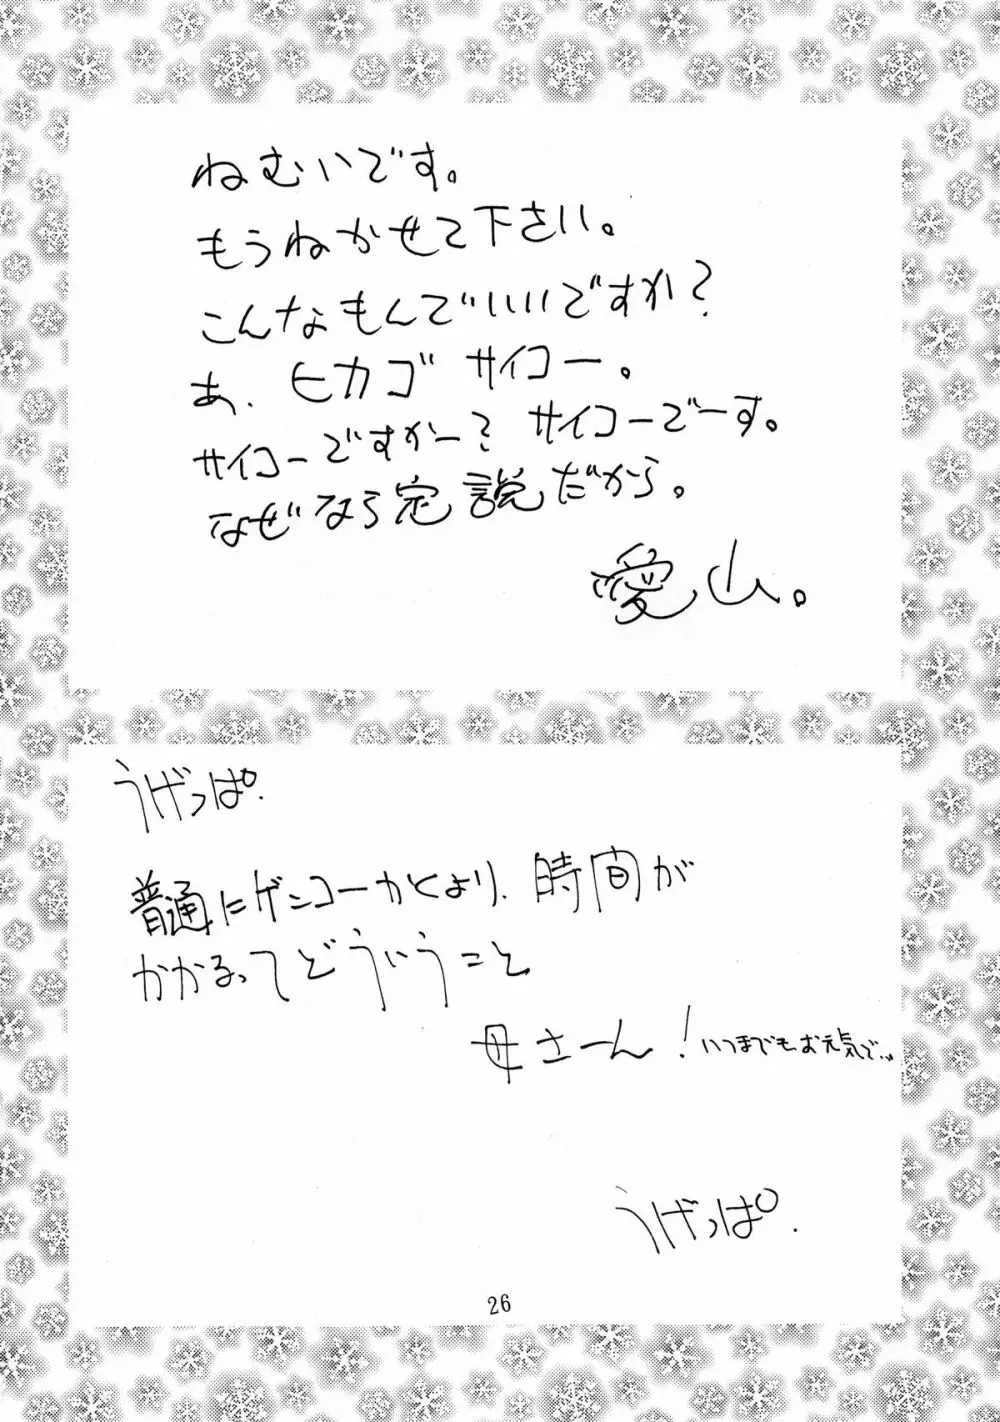 ねむいです。
もうねかせて下さい。
こんなもんでいいですか?
あ、ヒカゴ サイコー。
サイコーですかー? サイコーでーす。
なぜなら定説だから。
愛山。
うげっぱ。
普通にゲンコーかくより、時間が
かかるってどういうこと
母さーん!いつまでもお元気で…
うげっぱ。
26